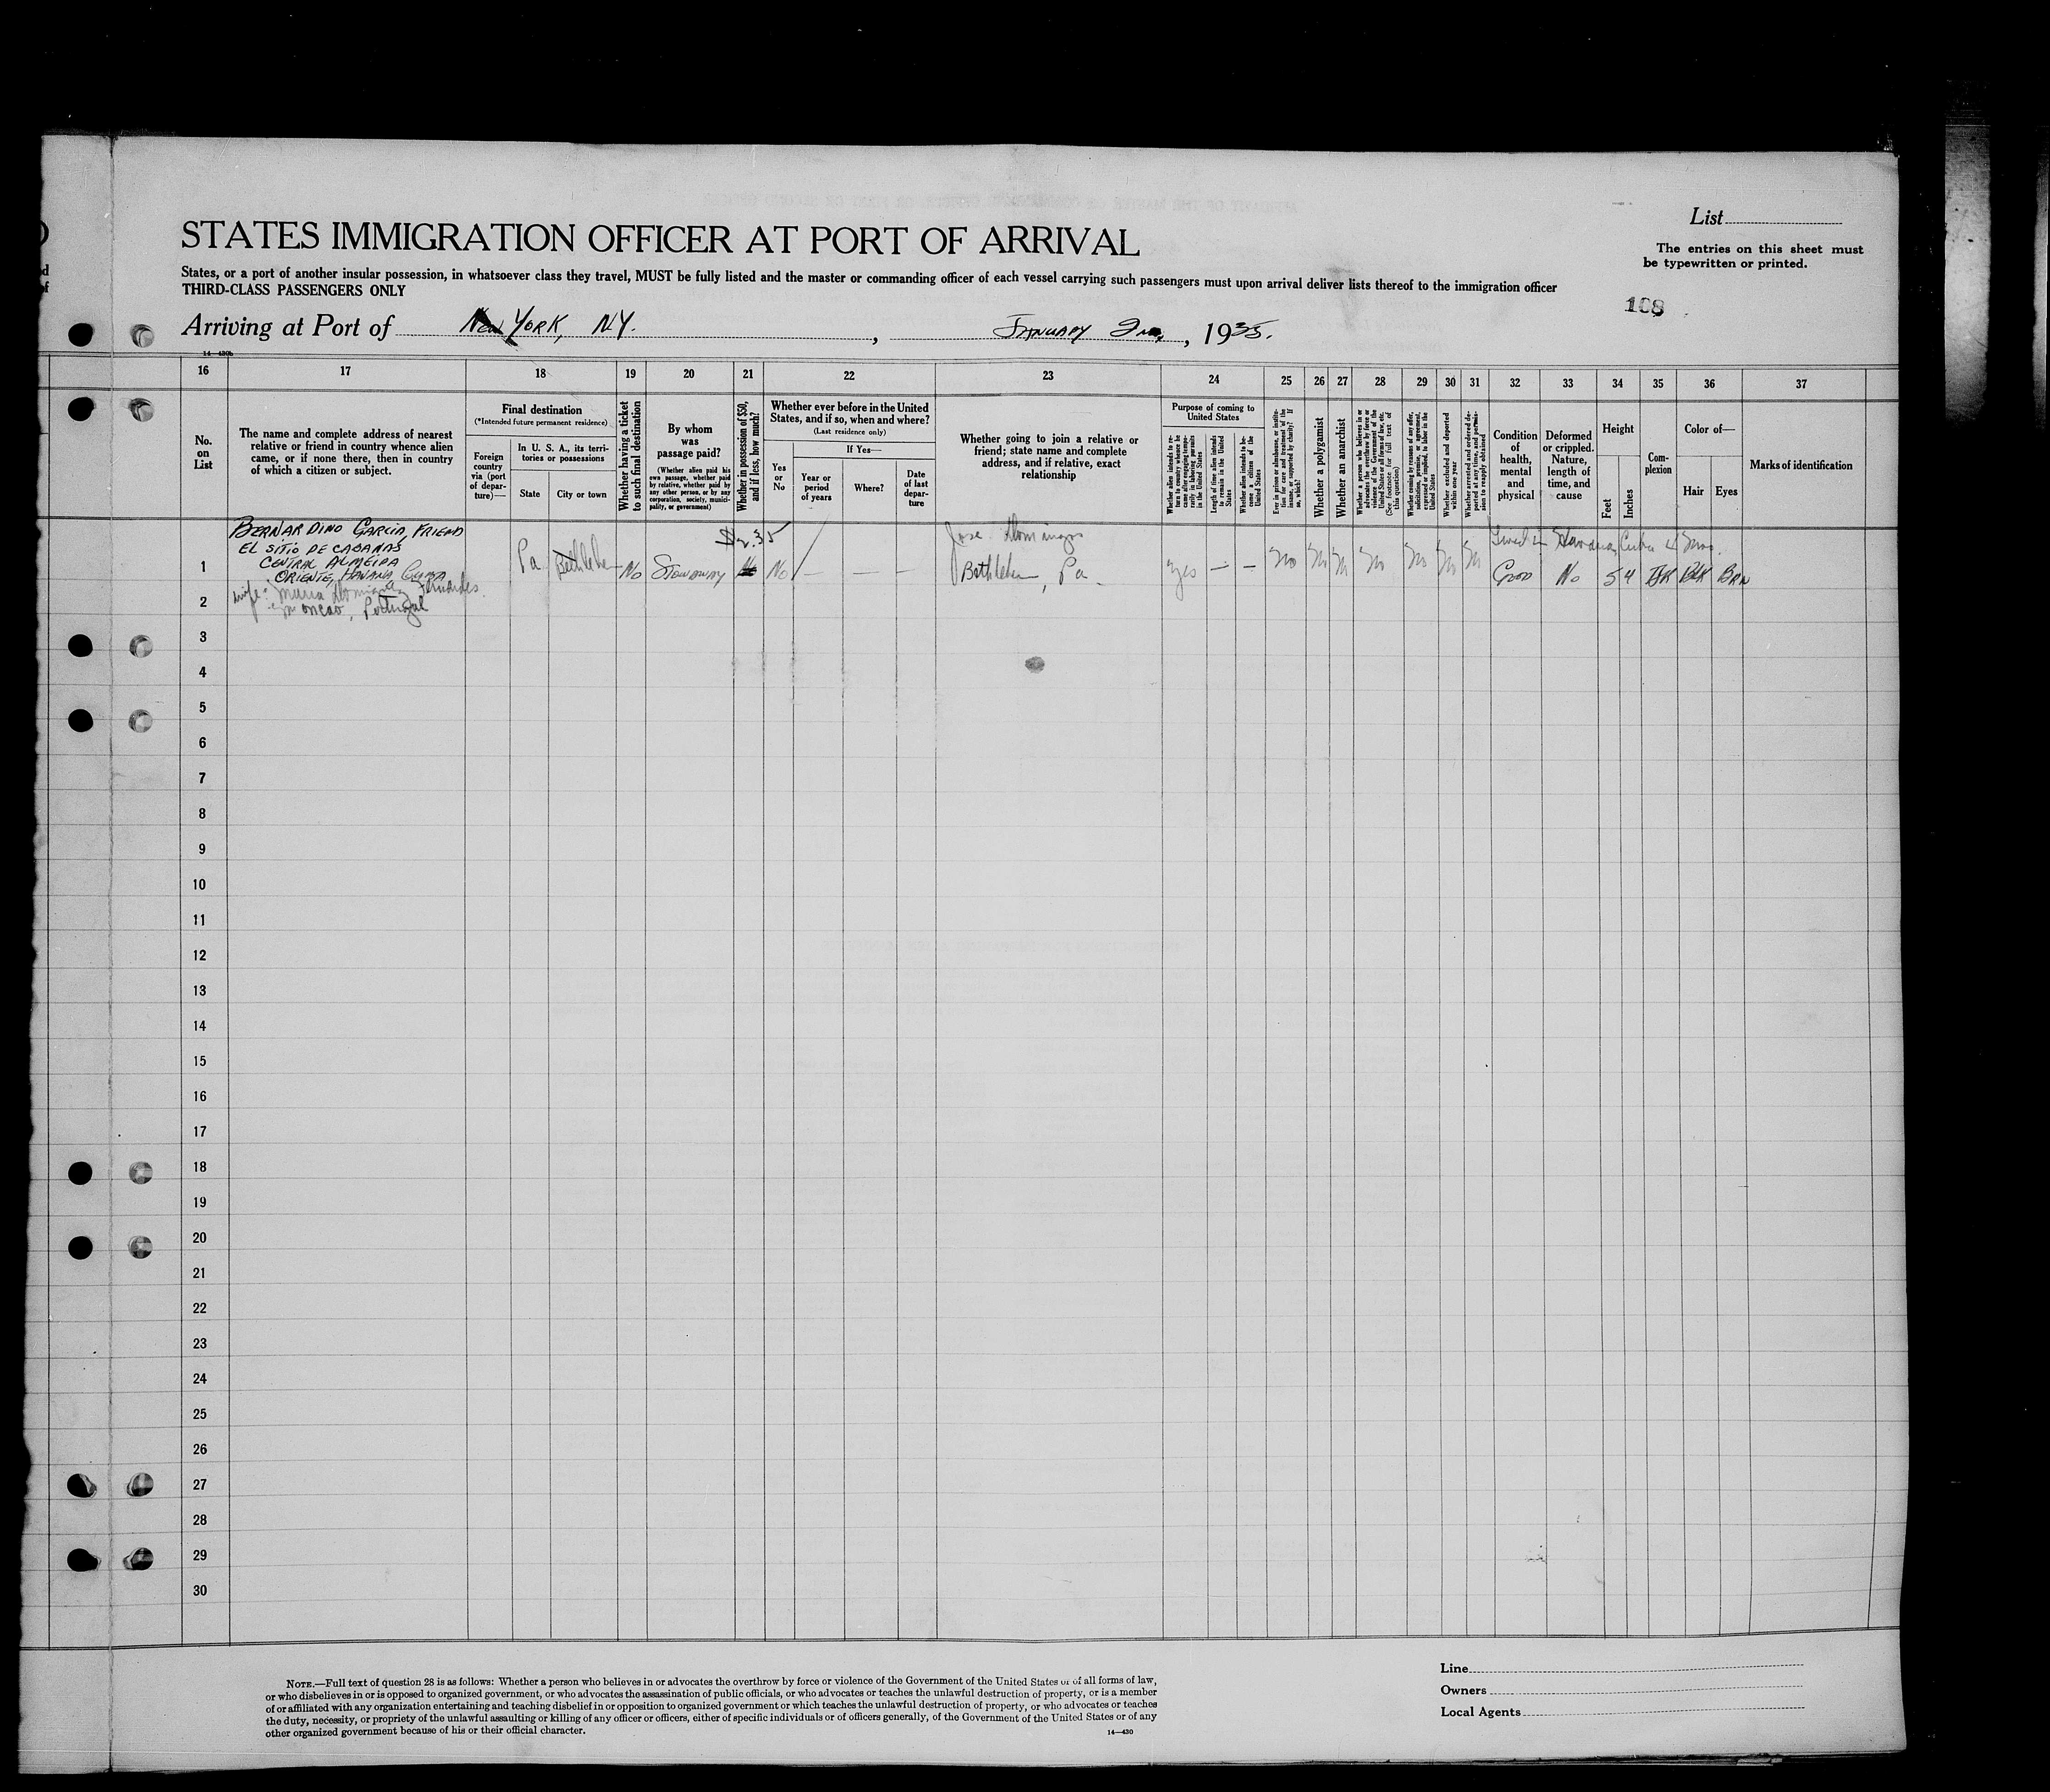 STATES IMMIGRATION OFFICER AT PORT OF ARRIVAL
List
The entries on this sheet must
be typewritten or printed.
States, or a port of another insular possession, in whatsoever class they travel, MUST be fully listed and the master or commanding officer of each vessel carrying such passengers must upon arrival deliver lists thereof to the immigration officer
THIRD-CLASS PASSENGERS ONLY
108
Arriving at Port of New York, N.Y. , January 2nd, , 1935.
14—430b
16 17 18 19 20 21 22 23 24 25 26 27 28 29 30 31 32 33 34 35 36 37
No.
on
List
The name and complete address of nearest
relative or friend in country whence alien
came, or if none there, then in country
of which a citizen or subject.
Final destination
(*Intended future permanent residence)
Foreign
country
via (port
of depar-
ture)—
In U. S. A., its terri-
tories or possessions
State
City or town
Whether having a ticket
to such final destination
By whom
was
passage paid?
(Whether alien paid his
own passage, whether paid
by relative, whether paid by
any other person, or by any
corporation, society, munici-
pality, or government)
Whether in possession of $50,
and if less, how much?
Whether ever before in the United
States, and if so, when and where?
(Last residence only)
Yes
or
No
If Yes—
Year or
period
of years
Where?
Date
of last
depar-
ture
Whether going to join a relative or
friend; state name and complete
address, and if relative, exact
relationship
Purpose of coming to
United States
Whether alien intends to re-
turn to country whence he
came after engaging tempo-
rarily in laboring pursuits
in the United States
Length of time alien intends
to remain in the United
States
Whether alien intends to be-
come a citizen of the
United States
Ever in prison or almshouse, or institu-
tion for care and treatment of the
insane, or supported by charity? If
so, which?
Whether a polygamist
Whether an anarchist
Whether a person who believes in or
advocates the overthrow by force or
violence of the Government of the
United States or all forms of law, etc.
(See footnote for full text of
this question)
Whether coming by reasons of any offer,
solicitation, promise, or agreement,
expressed or implied, to labor in the
United States
Whether excluded and deported
within one year
Whether arrested and ordered de-
ported at any time, and permis-
sion to reapply obtained
Condition
of
health,
mental
and
physical
Deformed
or crippled.
Nature,
length of
time, and
cause
Height
Feet
Inches
Com-
plexion
Color of—
Hair
Eyes
Marks of identification
Bernardino Garcia, Friend
El Sitio de Cabanas
Central Almeida
Oriente, Havana, Cuba
wife: Maria
Moncao, Portugal
1 Pa Bethlehem No Stowaway $2.35 No — — —
Jose Domingos
Bethlehem, Pa.
Yes — — No No No No No No No
Lived in Havana, Cuba 4 mos.
Good No 5 4 DK BLK BRN
2
3
4
5
6
7
8
9
10
11
12
13
14
15
16
17
18
19
20
21
22
23
24
25
26
27
28
29
30
NOTE.—Full text of question 28 is as follows: Whether a person who believes in or advocates the overthrow by force or violence of the Government of the United States or of all forms of law,
or who disbelieves in or is opposed to organized government, or who advocates the assassination of public officials, or who advocates or teaches the unlawful destruction of property, or is a member
of or affiliated with any organization entertaining and teaching disbelief in or opposition to organized government or which teaches the unlawful destruction of property, or who advocates or teaches
the duty, necessity, or propriety of the unlawful assaulting or killing of any officer or officers, either of specific individuals or of officers generally, of the Government of the United States or of any
other organized government because of his or their official character.
14—430
Line
Owners
Local Agents